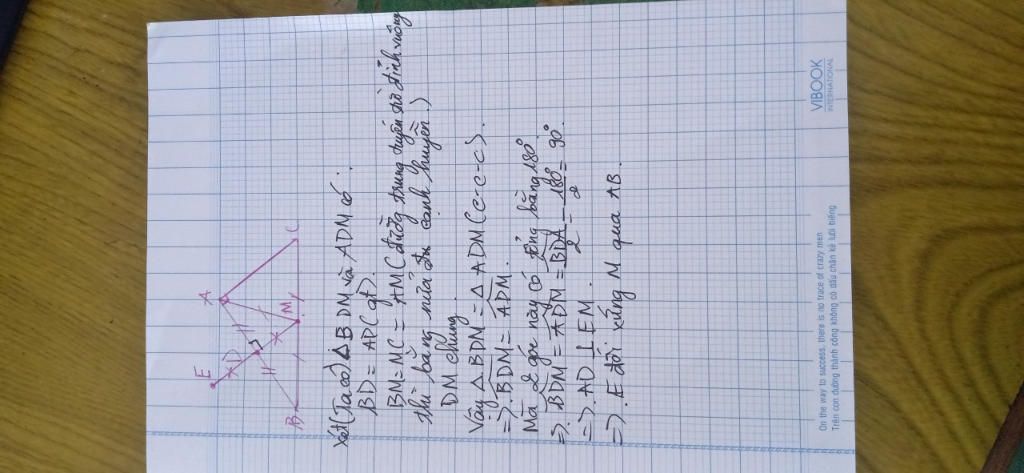 E
A
D
B
M
C
Xét (Ta có) ΔBDM và ADM có:
BD = AD (gt).
BM = MC = AM (đường trung tuyến từ đỉnh vuông
thì bằng nửa cạnh huyền.)
DM chung
Vậy ΔBDM = ΔADM (c-c-c).
=> BDM = ADM.
Mà 2 góc này có tổng bằng 180°
=> BDM = ADM = BDA/2 = 180°/2 = 90°.
=> AD ⊥ EM.
=> E đối xứng M qua AB.
VIBOOK
INTERNATIONAL
On the way to success, there is no trace of crazy men
Trên con đường thành công không có dấu chân kẻ lười biếng